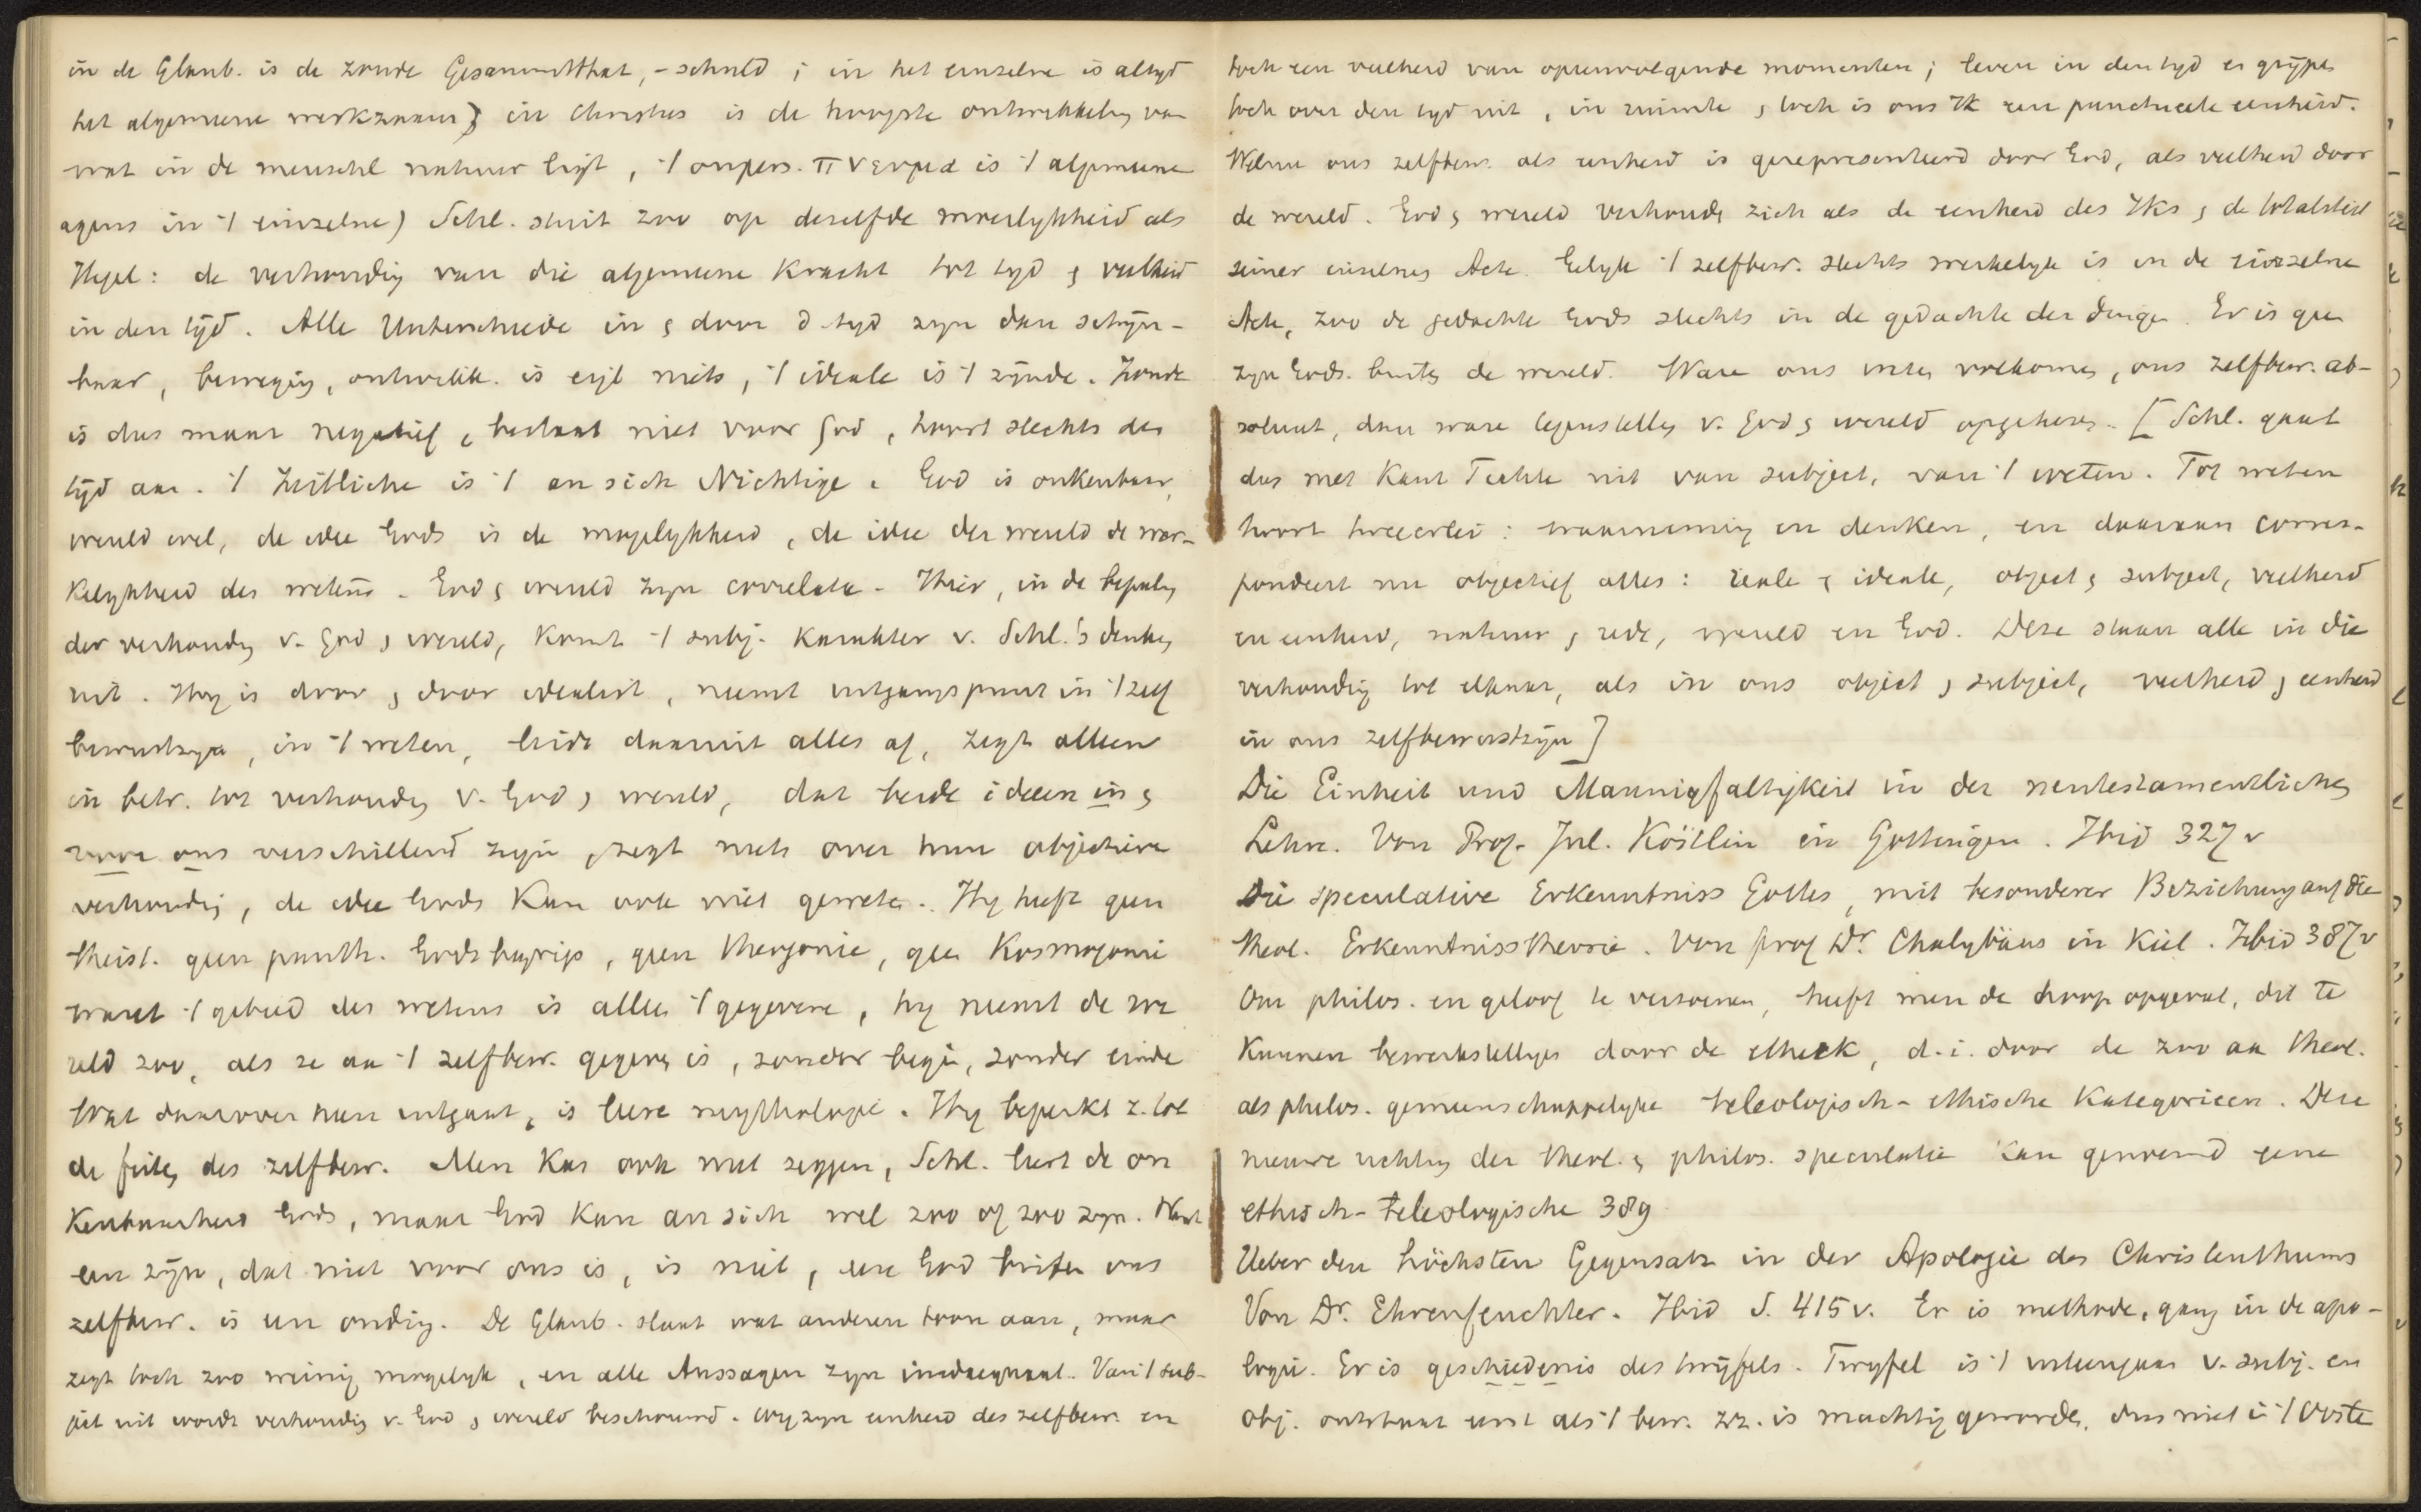 in de Glaub. is de zonde Gesammtthat, -schuld; in het einzelne is altyd
het algemeene werkzaam; in Christus is de hoogste ontwikkeling van
wat in de menschl natuur ligt, 't onpers. πνευμα is 't algemeene
agens in 't einzelne) Schl. sluit zoo op deselfde moeilykheid als
Hegel: de verhouding van die algemeene kracht tot tyd & veelheid
in den tyd. Alle Unterschiede in & door d tyd zyn dan schijn-
baar, beweging, ontwikk. is eigl niets, 't ideale is 't zijnde. Zonde
is dus maar negatief, bestaat niet voor God, hoort slechts den
tijd aan. 't Zeitliche is 't an sich Nichtige. God is onkenbaar,
wereld wel, de idee Gods is de mogelykheid, de idee der wereld de wer-
kelykheid des wetens. God & wereld zyn correlata. Hier, in de bepaling
der verhouding v. God & wereld, komt 't subj. karakter v. Schl.'s denken
uit. Hy is door & door idealist, neemt uitgangspunt in 't zelf
bewustzyn, in 't weten, leidt daaruit alles af, zegt alleen
in betr. tot verhouding v. God & wereld, dat beide ideeen in &
voor ons verschillend zijn, zegt niets over hun objectieve
verhouding, de idee Gods kan ook niet geweten. Hy heeft geen
theist. geen panth. Godsbegrip, geen theogonie, geen Kosmogonie
want 't gebied des wetens is alleen 't gegevene, hy neemt de we
reld zoo, als ze aan 't zelfbew. gegeven is, zonder begin, zonder einde
Wat daarover heen uitgaat, is leere mythologie. Hy beperkt z. tot
de feiten des zelfbew. Men kan ook niet zeggen, Schl. leert de on
kenbaarheid Gods, maar God kan an sich wel zoo of zoo zyn. Want
een zijn, dat niet voor ons is, is niet, een God buiten ons
zelfbew. is een onding. De Glaub. slaat wat anderen toon aan, maar
zegt toch zoo weinig mogelyk, en alle Aussagen zyn inadaequaat. Van 't sub-
ject uit wordt verhouding v. God & wereld beschouwd. Wy zyn eenheid des zelfbew. en
toch een veelheid van opeenvolgende momenten; leven in den tyd en grijpen
toch over den tyd uit, in ruimte & toch is ons Ik een punctueele eenheid.
Welnu ons zelfbew. als eenheid is gerepresenteerd door God, als veelheid door
de wereld. God & wereld verhouden zich als de eenheid des Iks & de totaliteit
seiner einzelnen Acte. Gelyk 't zelfbew. slechts werkelyk is in de einzelne
Acte, zoo de gedachte Gods slechts in de gedachte der dingen. Er is geen
zyn Gods buiten de wereld. Ware ons weten volkomen, ons zelfbew. ab-
soluut, dan ware tegenstelling v. God & wereld opgeheven. [Schl. gaat
dus met Kant Fichte uit van subject, van 't weten. Tot weten
hoort tweeerlei: waarneming en denken, en daaraan corres-
pondeert nu objectief alles: reale & ideale, object & subject, veelheid
en eenheid, natuur & rede, wereld en God. Deze staan alle in die
verhouding tot elkaar, als in ons object & subject, veelheid & eenheid
in ons zelfbewustzijn]
Die Einheit und Mannigfaltigkeit in der neutestamentlichen
Lehre. Von Prof. Jul. Köstlin in Göttingen. Ibid 327 v
Die speculative Erkenntniss Gottes, mit besonderer Beziehung auf die
theol. Erkenntnisstheorie. Von prof Dr. Chalybäus in Kiel. Ibid 387 v
Om philos. en geloof te verzoenen, heeft men de hoop opgevat, dit te
kunnen bewerkstelligen door de ethiek, d.i. door de zoo aan theol.
als philos. gemeenschappelyke teleologisch-ethische kategorieen. Deze
nieuwe richting der theol. & philos. speculatie kan genoemd eene
ethisch-teleologische 389
Ueber den höchsten Gegensatz in der Apologie des Christenthums
Von Dr. Ehrenfeuchter. Ibid S. 415 v. Er is methode, gang in de apo-
logie. Er is geschiedenis des twijfels. Twyfel is 't uiteengaan v. subj. en
obj. ontstaat eerst als 't bew. zz. is machtig geworden, dus niet in 't Oosten